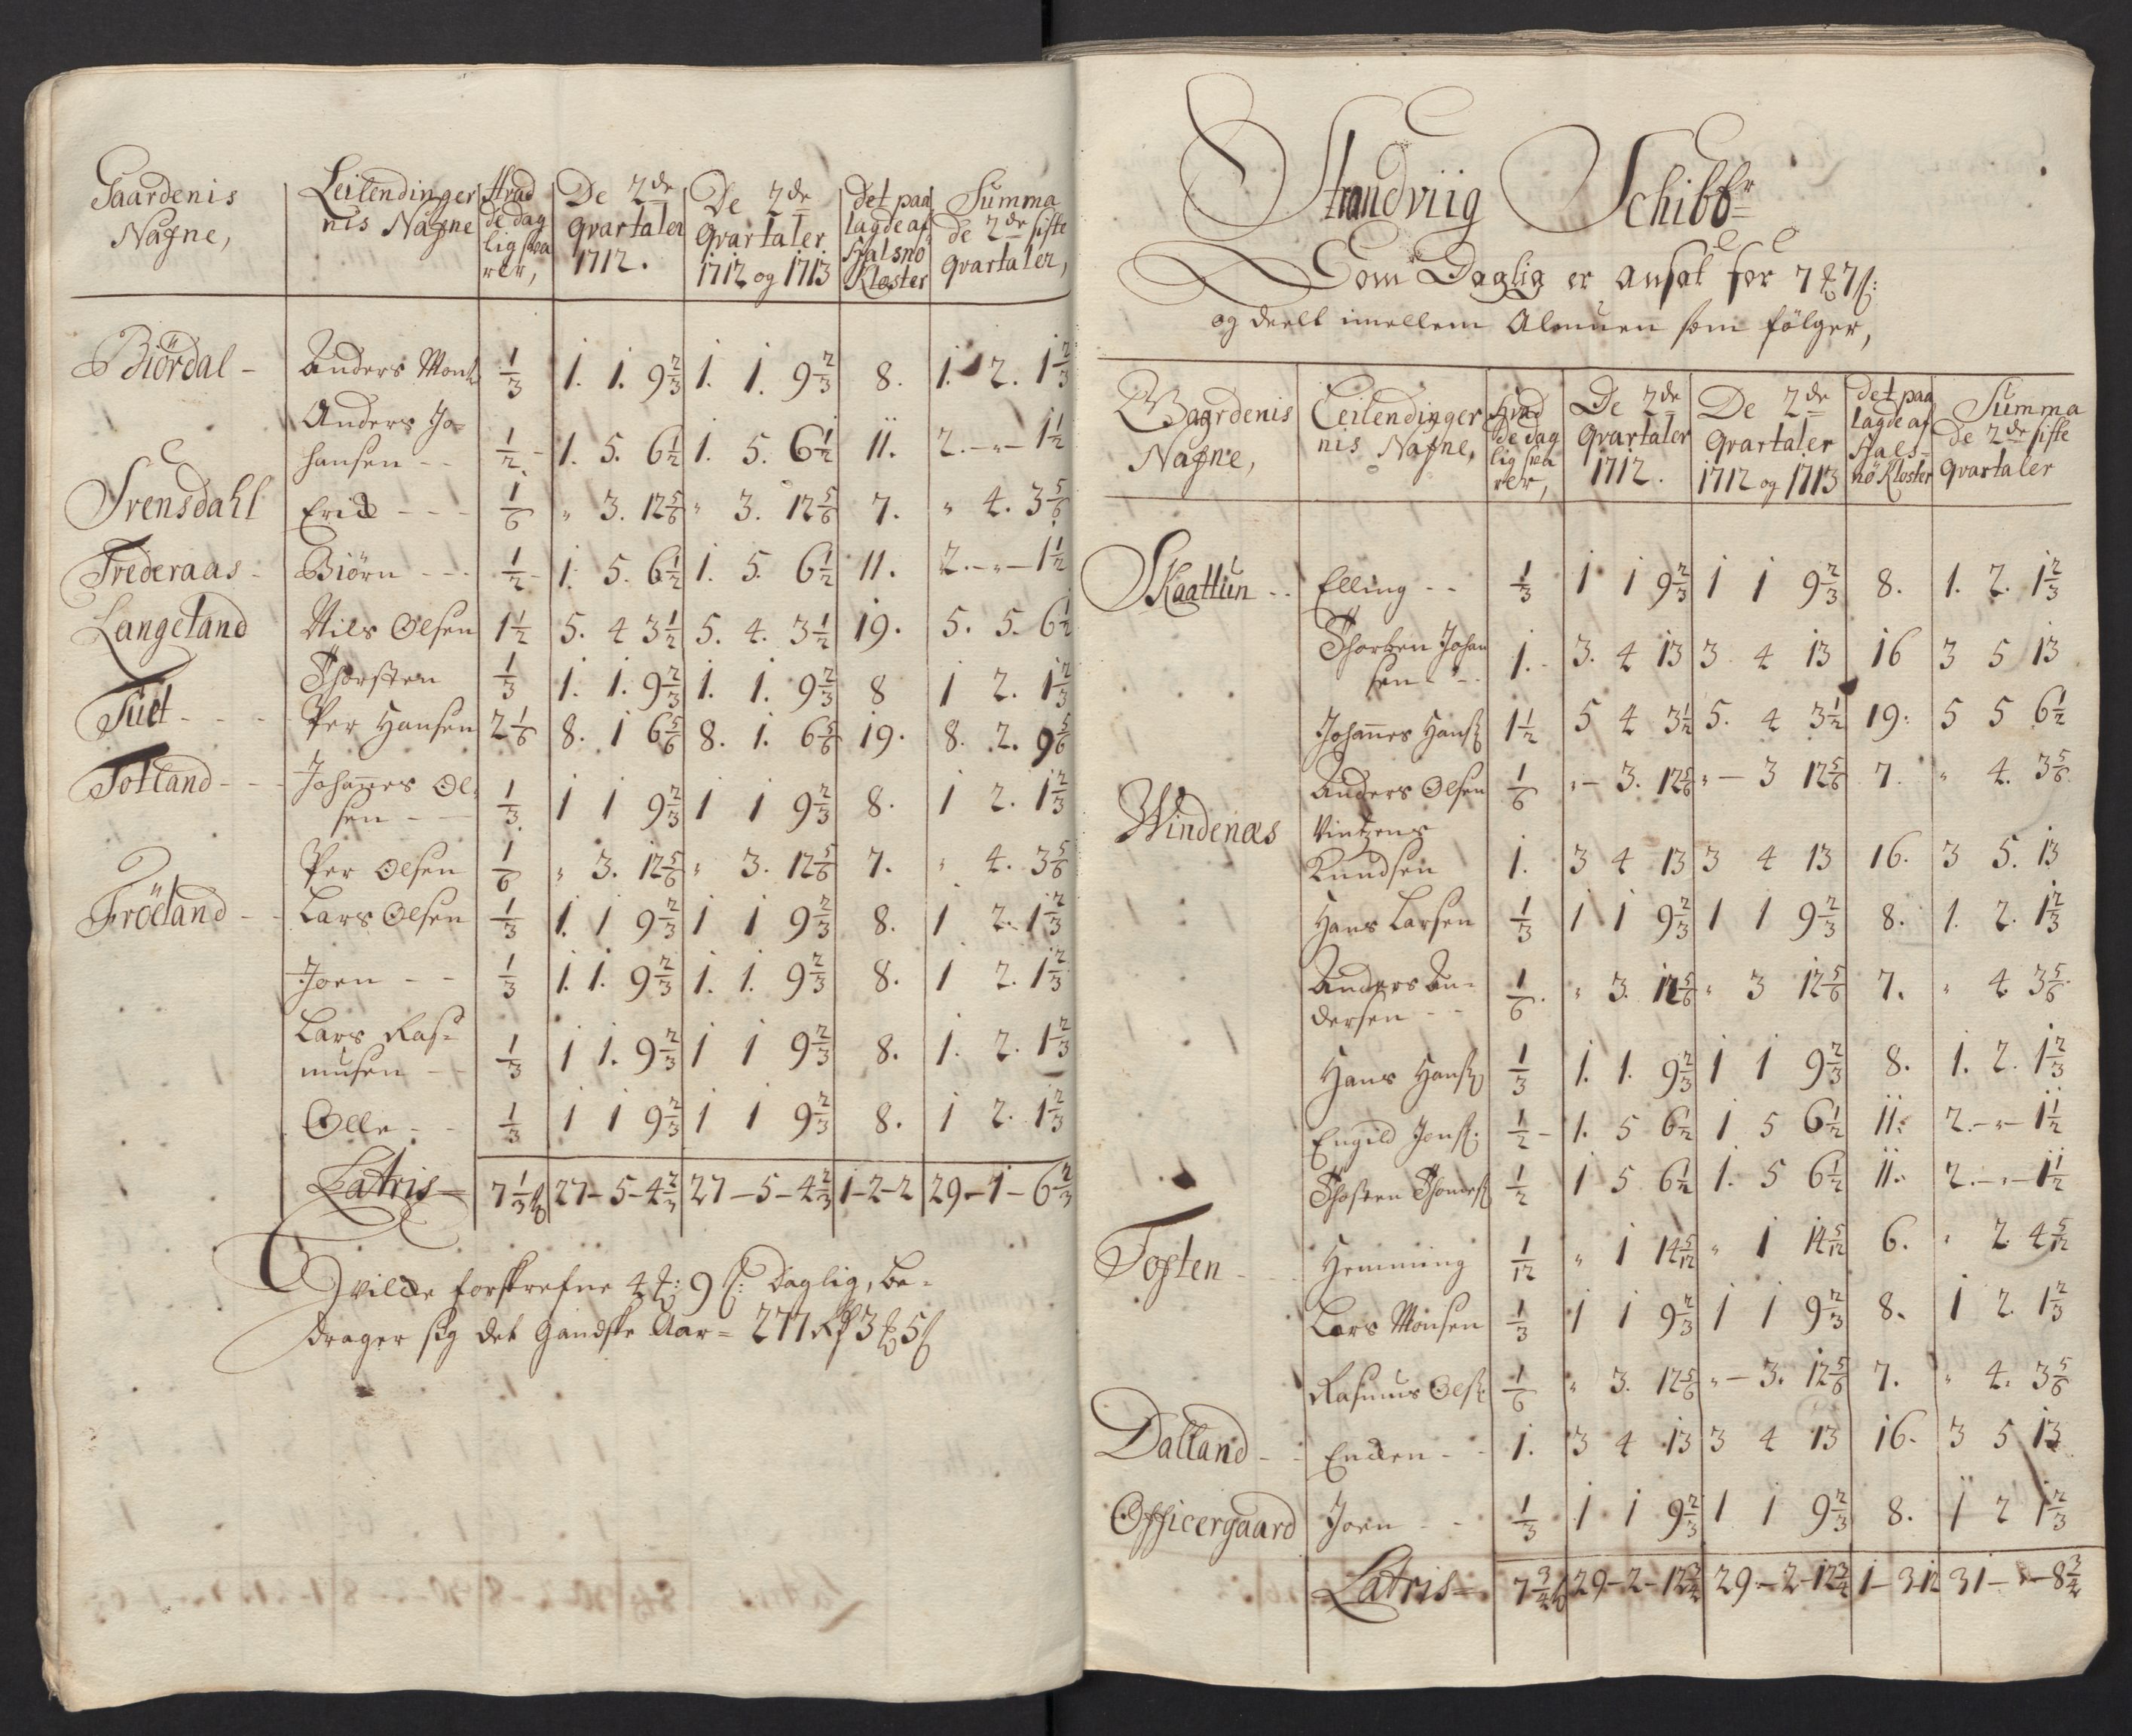 Gaardenis Nafne, | Leilendinger nis Nafne | Hvad de dag lig sva rer, | De 2de qvartaler 1712. | De 2de qvartaler 1712 og 1713 | det paa lagde af Halsnö Kloster | Summa de 2de siste qvartaler,
Biördal - | Anders Mons | 1/3 | 1. 1. 9 2/3 | 1. 1. 9 2/3 | 8. | 1. 2. 1 2/3
Anders Jo=
hansen - - | 1/2 - | 1. 5. 6 1/2 | 1. 5. 6 1/2 | 11. | 2. - „ - 1 1/2
Svensdahl | Erick - - - | 1/6 | „ 3. 12 5/6 | „ 3. 12 5/6 | 7. | „ 4. 3 5/6
Frederaas - | Biörn - - - | 1/2 - | 1. 5. 6 1/2 | 1. 5. 6 1/2 | 11. | 2. - „ - 1 1/2
Langeland | Nils Olsen | 1 1/2 | 5. 4 3 1/2 | 5. 4. 3 1/2 | 19. | 5. 5. 6 1/2
Thorsten | 1/3 | 1. 1. 9 2/3 | 1. 1. 9 2/3 | 8 | 1 2. 1 2/3
- - - | Per Hansen | 2 1/6 | 8. 1 6 5/6 | 8. 1. 6 5/6 | 19. | 8. 2. 9 5/6
Totland - - - | Johannes Ol=
sen - - | 1/3 | 1 1 9 2/3 | 1 1 9 2/3 | 8. | 1 2. 1 2/3
Per Olsen | 1/6 | „ 3. 12 5/6 | „ 3. 12 5/6 | 7. | „ 4. 3 5/6
Fröland - - | Lars Olsen | 1/3 | 1. 1 9 2/3 | 1 1 9 2/3 | 8. | 1 2. 1 2/3
Joen - - | 1/3 | 1. 1. 9 2/3 | 1. 1. 9 2/3 | 8. | 1 2. 1 2/3
Lars Ras=
musen - - | 1/3 | 1 1. 9 2/3 | 1 1 9 2/3 | 8. | 1. 2. 1 2/3
Olle - - | 1/3 | 1 1 9 2/3 | 1 1 9 2/3 | 8. | 1 2. 1 2/3
Latris = | 7 1/3 ß | 27 - 5 - 4 2/3 | 27 - 5 - 4 2/3 | 1 - 2 - 2 | 29 - 1 - 6 2/3
Hvilcke forskrefne 4 ℔: 9 ß: Daglig, be=
drager sig det gandske Aar = 277 Rd 3 ℔ 5 ß
Strandviig Schibbr
Som Daglig er ansat for 7 ℔ 7 ß:
og deelt imellem Almuen som fölger,
Gaardenis Nafne, | Leilendinger nis Nafne, | Hvad de dag lig sva rer, | De 2de qvartaler 1712. | De 2de qvartaler 1712 og 1713 | det paa lagde af Hals= nö Kloster | Summa de 2de siste qvartaler
Skaattun - - | Elling - - | 1/3 | 1 1 9 2/3 | 1 1 9 2/3 | 8. | 1. 2. 1 2/3
Thorben Johan
sen - - | 1. - | 3. 4 13 | 3 4 13 | 16 | 3 5 13
Johannes Hanß | 1 1/2 | 5 4 3 1/2 | 5. 4 3 1/2 | 19. | 5 5 6 1/2
Anders Olsen | 1/6 | „ - 3. 12 5/6 | „ - 3 12 5/6 | 7. | „ 4. 3 5/6
Windenæs | Vintzens
Knudsen | 1. | 3 4 13 | 3 4 13 | 16. | 3 5. 13
Hans Larsen | 1/3 | 1 1 9 2/3 | 1 1 9 2/3 | 8. | 1. 2. 1 2/3
Anders An=
dersen - - | 1/6. | „ 3. 12 5/6 | „ 3 12 5/6 | 7. | „ 4 3 5/6
Hans Hanß | 1/3 | 1. 1. 9 2/3 | 1 1 9 2/3 | 8. | 1. 2. 1 2/3
Engild Jonß. | 1/2 - | 1. 5 6 1/2 | 1 5 6 1/2 | 11. | 2. - „ - 1 1/2
1/2 | 1 5 6 1/2 | 1. 5 6 1/2 | 11. | 2. - „ - 1 1/2
Toften - - | Hemming | 1/12 | „ 1 14 5/12 | „ 1 14 5/12 | 6. | „ 2 4 5/12
Lars Monsen | 1/3 | 1 1 9 2/3 | 1 1 9 2/3 | 8. | 1 2. 1 2/3
Rasmus Olß. | 1/6 | „ 3. 12 5/6 | „ - 3. 12 5/6 | 7. | „ 4. 3 5/6
Dalland - - | Encken - - | 1. | 3 4 13 | 3 4 13 | 16. | 3 5 13
Officergaard | Joen - - | 1/3 | 1 1 9 2/3 | 1 1 9 2/3 | 8. | 1 2 1 2/3
Latris = | 7 3/4 ß | 29 - 2 - 12 3/4 | 29 - 2 - 12 3/4 | 1 - 3 - 12 | 31 - „ - 8 3/4